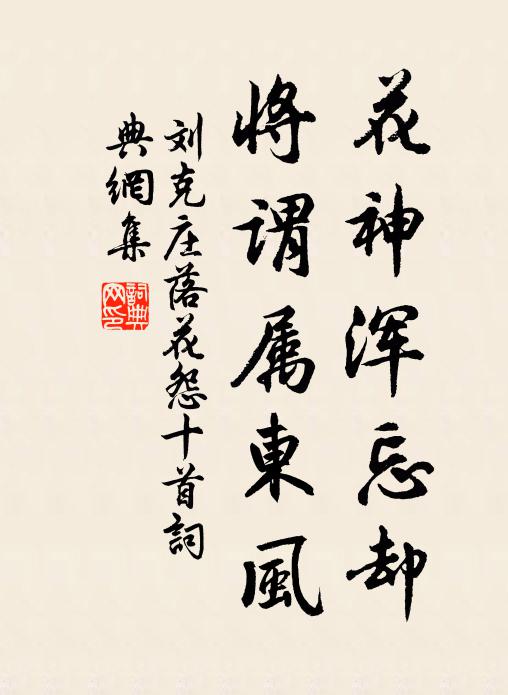 花神浑忘却
将谓属東風
刘克庄落花怨十首詞
典網集
詞典網印